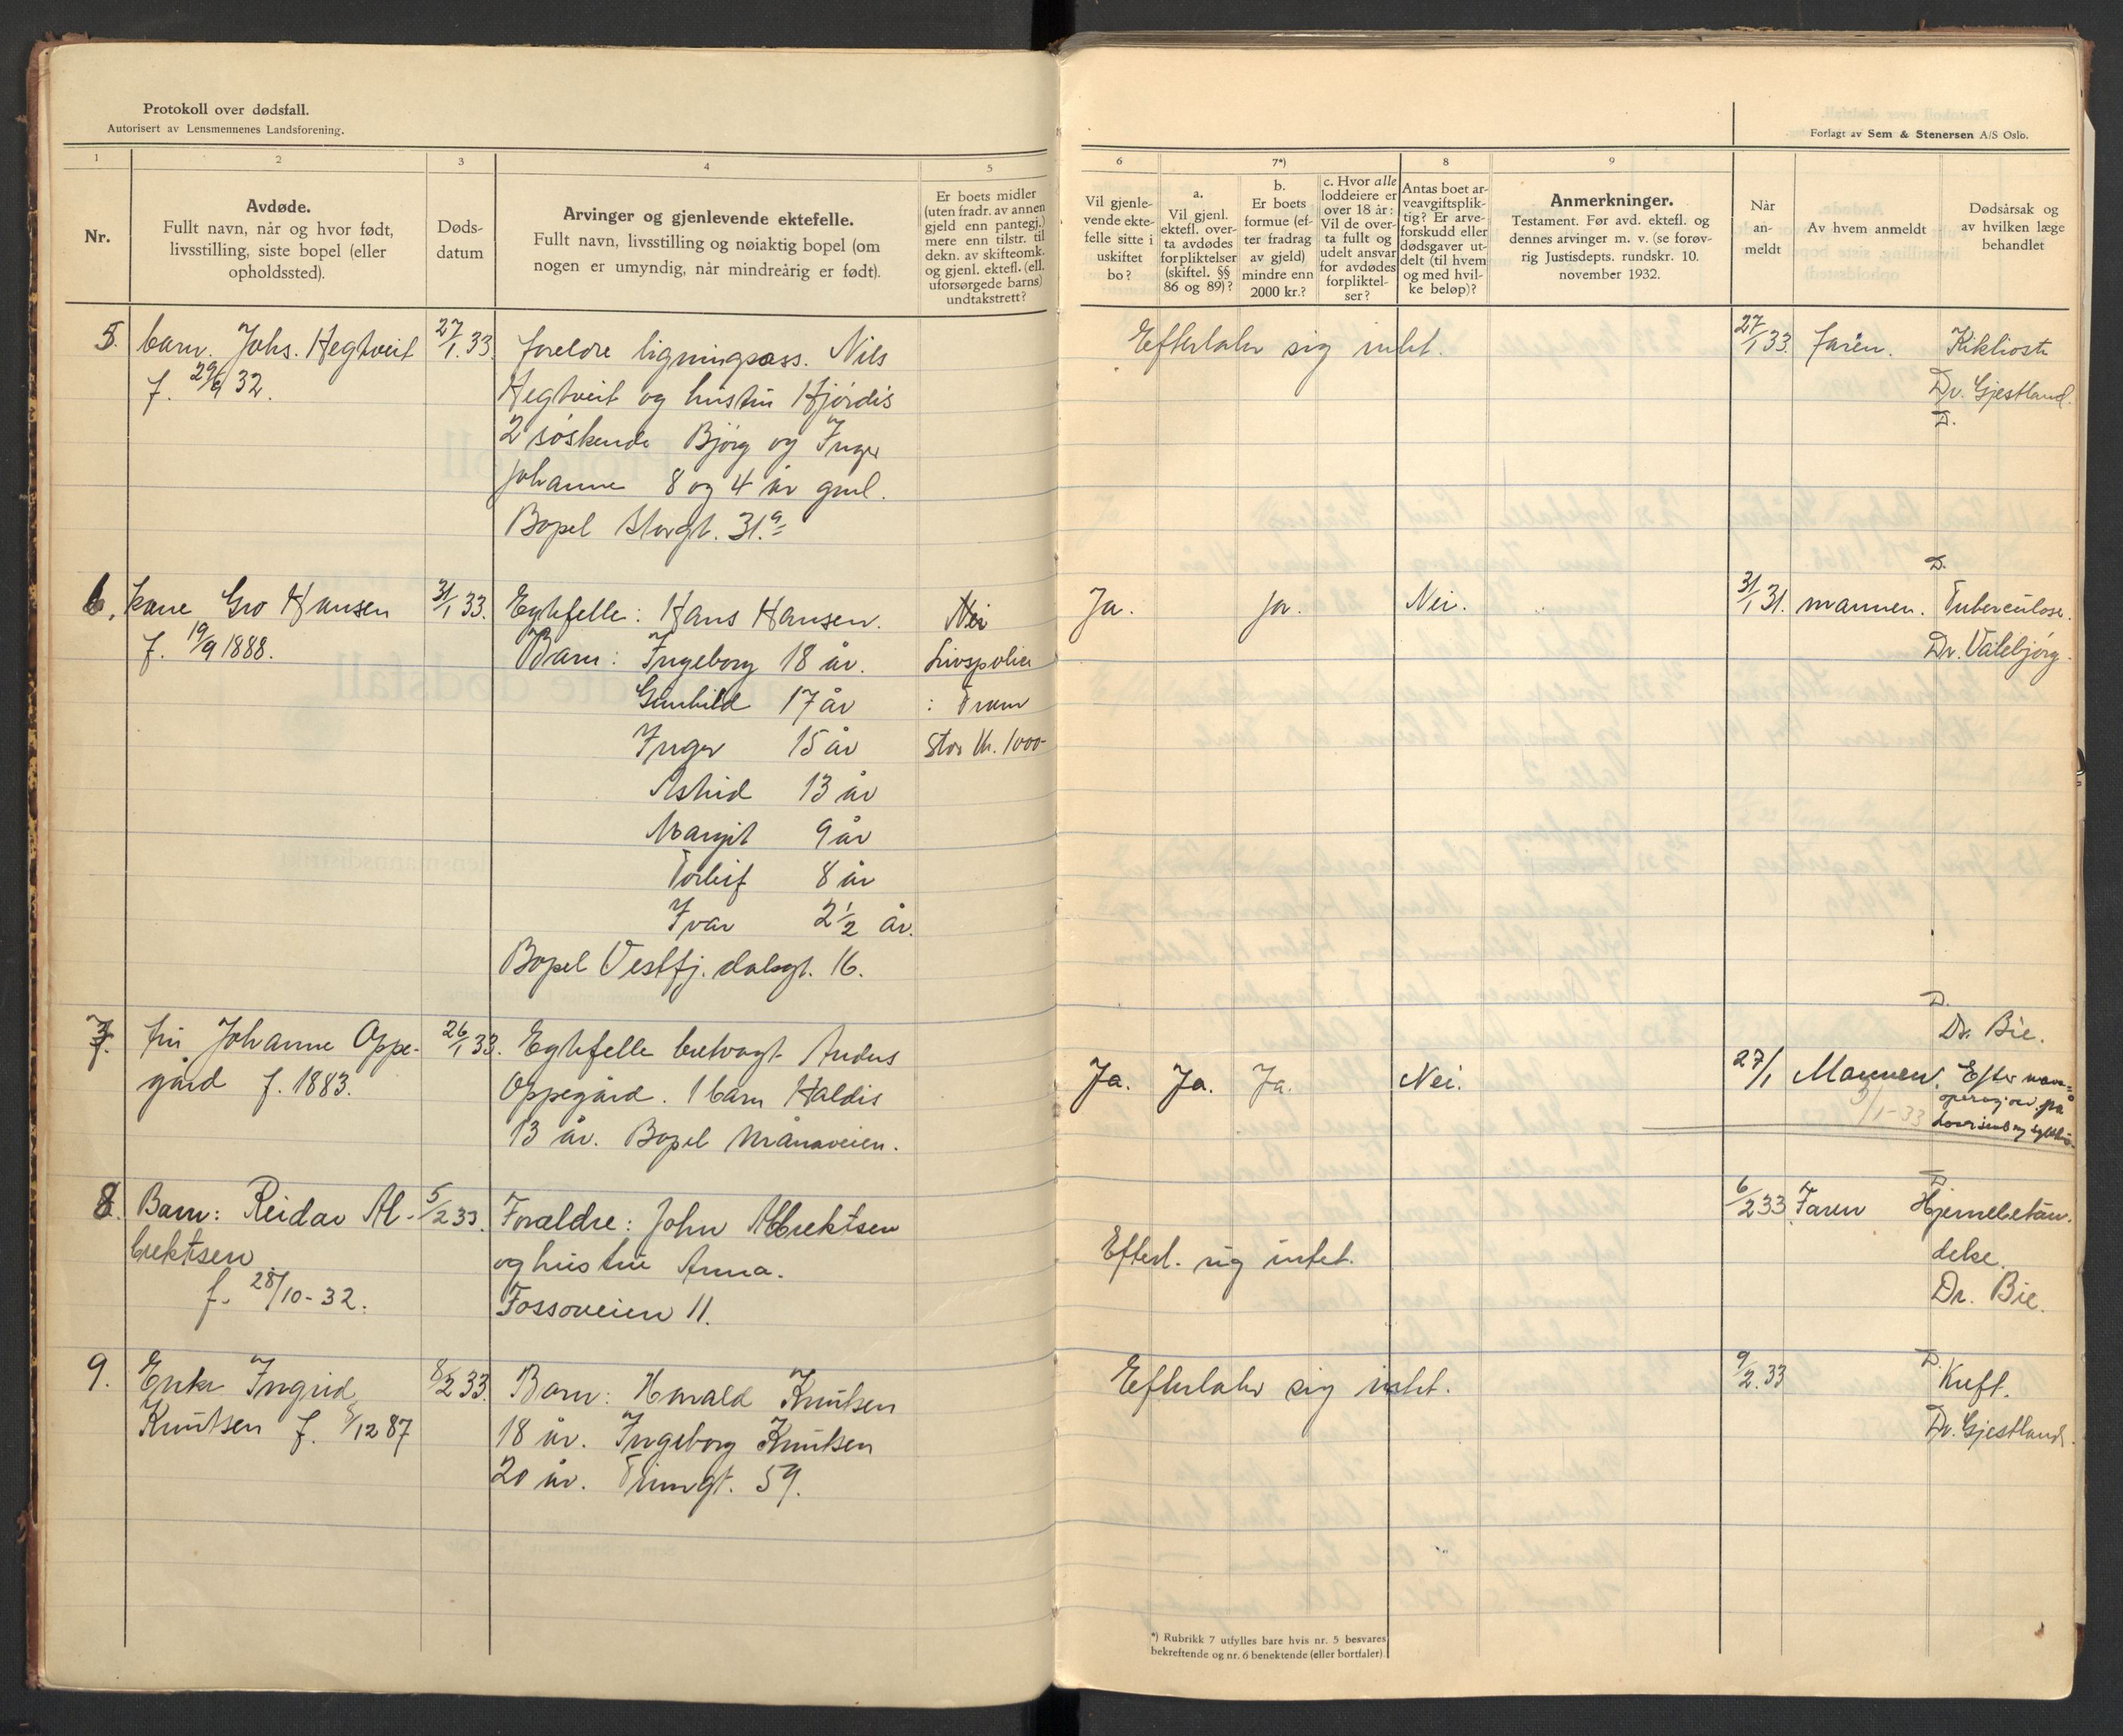 Protokoll over dødsfall.
Autorisert av Lensmennenes Landsforening.
1
2
3
4
5
Nr.
Avdøde.
Fullt navn, når og hvor født,
livsstilling, siste bopel (eller
opholdssted).
Døds-
datum
Arvinger og gjenlevende ektefelle.
Fullt navn, livsstilling og nøiaktig bopel (om
nogen er umyndig, når mindreårig er født).
Er boets midler
(uten fradr. av annen
gjeld enn pantegj.)
mere enn tilstr. til
dekn. av skifteomk.
og gjenl. ektef. (ell.
uforsørgede barns)
undtakstrett?
5.
barn. Johs. Hegtveit
f. 29/6 32.
27/1.33.
foreldre ligningsass. Nils
Hegtveit og hustru Hjördis
2 söskende Björg og Inger
Johanne 8 og 4 år gml.
Bopel Storgt. 31.a
6.
kone Gro Hansen
f. 19/9 1888.
31/1 33.
Egtefelle: Hans Hansen.
Barn: Ingeborg 18 år.
Gunhild 17 år
Inger 15 år
Astrid 13 år
Margit 9 år
Torleif 8 år
Ivar 2 1/2 år.
Bopel Vestfj. dalsgt. 16.
Nei
Livspolice
: Fram
stor kr. 1000-
7.
fru Johanne Oppe-
gård f. 1883.
26/1 33.
Egtefelle betvagt Anders
Oppegård. 1 barn Haldis
13 år. Bopel Månaveien.
8.
Barn: Reidar Al-
brektsen
f. 28/10-32.
5/2 33.
Forældre: John Albrektsen
og hustru Anna.
Fossoveien 11.
9.
Enke Ingrid
Knutsen f. 8/12 87
8/2 33.
Barn: Harald Knutsen
18 år. Ingeborg Knutsen
20 år. Tinngt. 59.
Forlagt av Sem & Stenersen A/S Oslo.
6
7*)
8
9
Vil gjenle-
vende ekte-
felle sitte i
uskiftet
bo?
a.
Vil gjenl.
ektefl. over-
ta avdødes
forpliktelser
(skiftel. §§
86 og 89)?
b.
Er boets
formue (ef-
ter fradrag
av gjeld)
mindre enn
2000 kr.?
c. Hvor alle
loddeiere er
over 18 år:
Vil de over-
ta fullt og
udelt ansvar
for avdødes
forpliktel-
ser?
Antas boet ar-
veavgiftsplik-
tig? Er arve-
forskudd eller
dødsgaver ut-
delt (til hvem
og med hvil-
ke beløp)?
Anmerkninger.
Testament. Før avd. ektefl. og
dennes arvinger m. v. (se forøv-
rig Justisdepts. rundskr. 10.
november 1932.
Når
an-
meldt
Av hvem anmeldt
Dødsårsak og
av hvilken læge
behandlet
Efterlater sig intet.
27/1 33.
faren.
Kikhoste
Dr. Gjestland.
D.
Ja.
ja.
Nei.
31/1 31.
mannen.
D.
Tuberculose.
Dr. Valebjörg.
Ja.
Ja.
Ja.
Nei.
27/1
Mannen.
D.
Dr. Bie.
Efter
operasjon på
1-33
Efterl. sig intet.
6/2 33
Faren
D.
Hjernebetæn-
delse.
Dr. Bie.
Efterlater sig intet.
9/2.33
D.
Kreft.
Dr. Gjestland.
*) Rubrikk 7 utfylles bare hvis nr. 5 besvares
bekreftende og nr. 6 benektende (eller bortfaler)